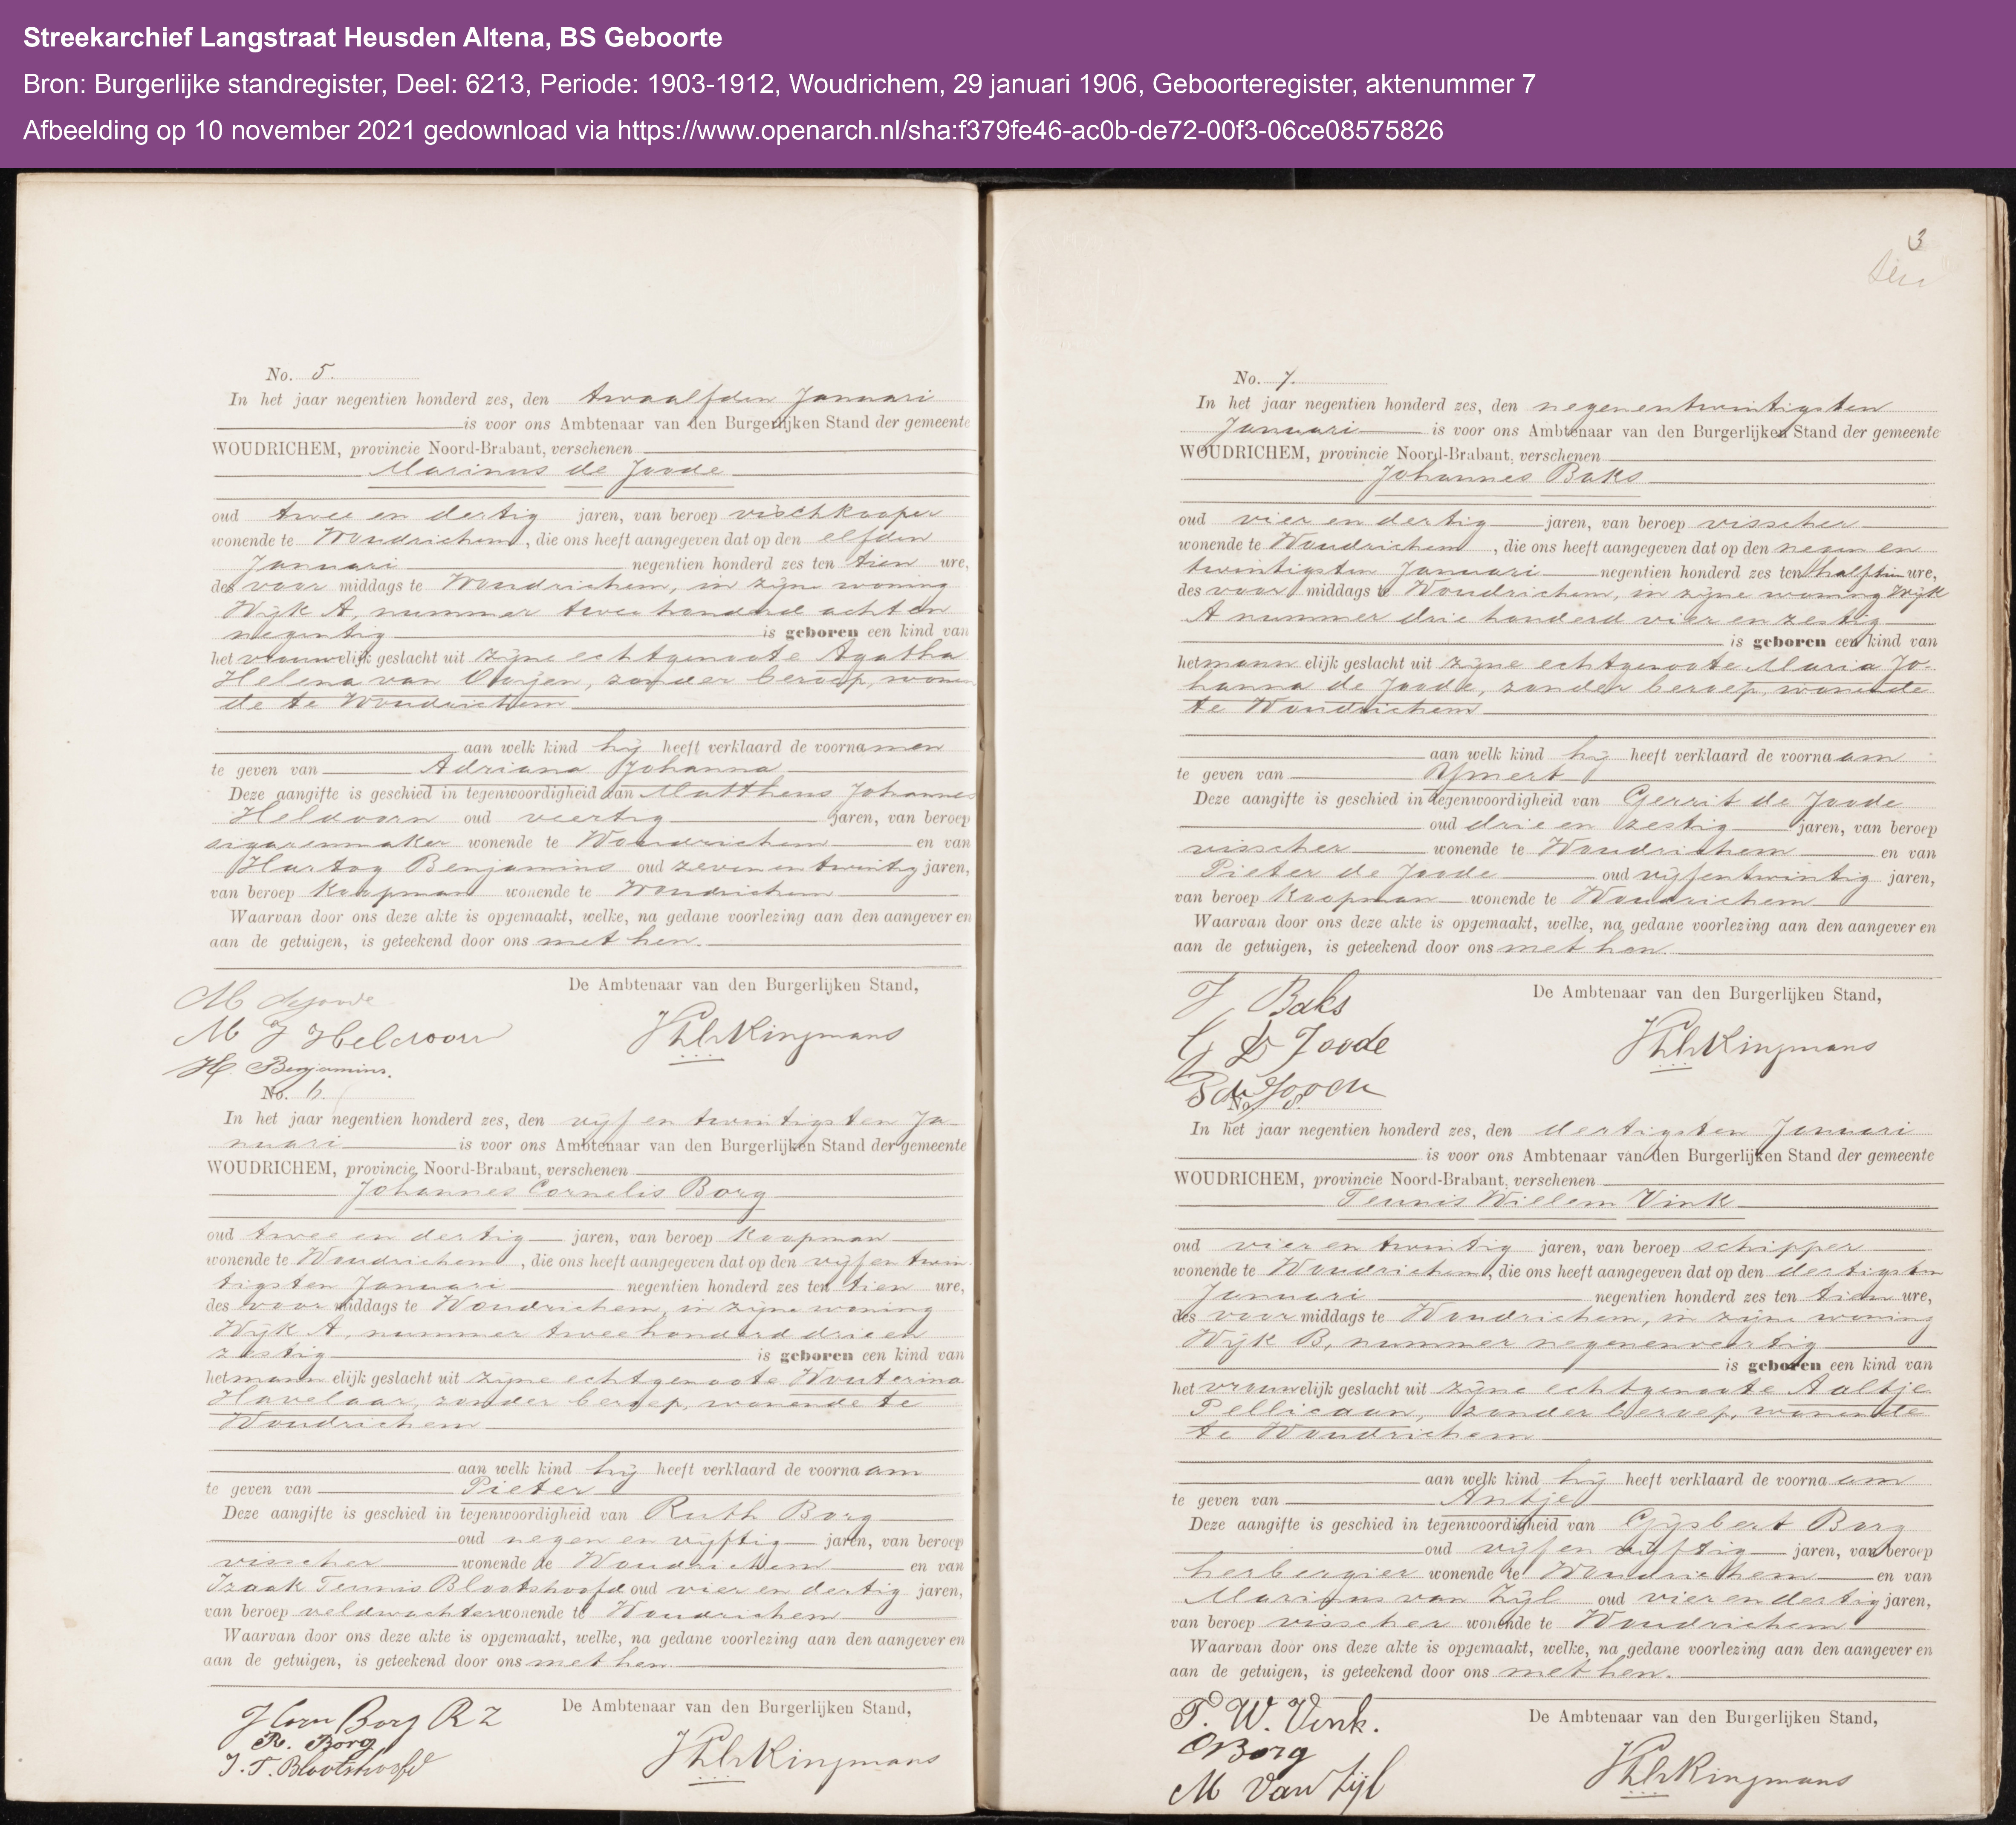 Streekarchief Langstraat Heusden Altena, BS Geboorte
Bron: Burgerlijke standregister, Deel: 6213, Periode: 1903-1912, Woudrichem, 29 januari 1906, Geboorteregister, aktenummer 7
Afbeelding op 10 november 2021 gedownload via https://www.openarch.nl/sha:f379fe46-ac0b-de72-00f3-06ce08575826
No. 5.
In het jaar negentien honderd zes, den twaalfden Januari
is voor ons Ambtenaar van den Burgerlijken Stand der gemeente
WOUDRICHEM, provincie Noord-Brabant, verschenen
Marinus de Joode
oud twee en dertig jaren, van beroep vischkooper
wonende te Woudrichem, die ons heeft aangegeven dat op den elfden
Januari negentien honderd zes ten tien ure,
des voor middags te Woudrichem, in zijne woning
Wijk A, nummer twee honderd acht en
negentig is geboren een kind van
het vrouwelijk geslacht uit zijne echtgenoote Agatha
Helena van Oorjen, zonder beroep, wonen
de te Woudrichem
aan welk kind hij heeft verklaard de voornamen
te geven van Adriana Johanna
Deze aangifte is geschied in tegenwoordigheid van Mattheus Johannes
Heldoorn oud veertig jaren, van beroep
sigarenmaker wonende te Woudrichem en van
Hartog Benjamins oud zevenentwintig jaren,
van beroep Koopman wonende te Woudrichem
Waarvan door ons deze akte is opgemaakt, welke, na gedane voorlezing aan den aangever en
aan de getuigen, is geteekend door ons met hen.
De Ambtenaar van den Burgerlijken Stand,
M de Joode
M J Heldoorn
H. Benjamins.
No. 6.
In het jaar negentien honderd zes, den vijf en twintigsten Ja-
nuari is voor ons Ambtenaar van den Burgerlijken Stand der gemeente
WOUDRICHEM, provincie Noord-Brabant, verschenen
Johannes Cornelis Borg
oud twee en dertig jaren, van beroep Koopman
wonende te Woudrichem, die ons heeft aangegeven dat op den vijf en twin
tigsten Januari negentien honderd zes ten tien ure,
des voor middags te Woudrichem, in zijne woning
Wijk A, nummer tweehonderd drie en
zestig is geboren een kind van
het mannelijk geslacht uit zijne echtgenoote Wouterina
Havelaar, zonder beroep, wonende te
Woudrichem
aan welk kind hij heeft verklaard de voornaam
te geven van Pieter
Deze aangifte is geschied in tegenwoordigheid van Ruth Borg
oud negen en vijftig jaren, van beroep
visscher wonende te Woudrichem en van
Izaak Teunis Blootshoofd oud vier en dertig jaren,
van beroep veldwachter wonende te Woudrichem
Waarvan door ons deze akte is opgemaakt, welke, na gedane voorlezing aan den aangever en
aan de getuigen, is geteekend door ons met hen.
De Ambtenaar van den Burgerlijken Stand,
J Corn Borg RZ
R. Borg
J. T. Blootshoofd
3
No. 7.
In het jaar negentien honderd zes, den negenentwintigsten
Januari is voor ons Ambtenaar van den Burgerlijken Stand der gemeente
WOUDRICHEM, provincie Noord-Brabant, verschenen
Johannes Baks
oud vier en dertig jaren, van beroep visscher
wonende te Woudrichem, die ons heeft aangegeven dat op den negen en
twintigsten Januari negentien honderd zes ten half tien ure,
des voor middags te Woudrichem, in zijne woning Wijk
A nummer drie honderd vier en zestig
is geboren een kind van
het mannelijk geslacht uit zijne echtgenoote Maria Jo-
hanna de Joode, zonder beroep, wonende
te Woudrichem
aan welk kind hij heeft verklaard de voornaam
te geven van IJmert
Deze aangifte is geschied in tegenwoordigheid van Gerrit de Joode
oud drie en zestig jaren, van beroep
visscher wonende te Woudrichem en van
Pieter de Joode oud vijfentwintig jaren,
van beroep Koopman wonende te Woudrichem
Waarvan door ons deze akte is opgemaakt, welke, na gedane voorlezing aan den aangever en
aan de getuigen, is geteekend door ons met hen.
De Ambtenaar van den Burgerlijken Stand,
J Baks
G D Joode
P de Joode
No. 8.
In het jaar negentien honderd zes, den dertigsten Januari
is voor ons Ambtenaar van den Burgerlijken Stand der gemeente
WOUDRICHEM, provincie Noord-Brabant, verschenen
Teunis Willem Vink
oud vier en twintig jaren, van beroep schipper
wonende te Woudrichem, die ons heeft aangegeven dat op den dertigsten
Januari negentien honderd zes ten tien ure,
des voor middags te Woudrichem, in zijne woning
Wijk B, nummer negenenveertig
is geboren een kind van
het vrouwelijk geslacht uit zijne echtgenoote Aaltje
Pellicaan, zonder beroep, wonende
te Woudrichem
aan welk kind hij heeft verklaard de voornaam
te geven van Antje
Deze aangifte is geschied in tegenwoordigheid van Gijsbert Borg
oud vijf en vijftig jaren, van beroep
herbergier wonende te Woudrichem en van
Marinus van Zijl oud vier en dertig jaren,
van beroep visscher wonende te Woudrichem
Waarvan door ons deze akte is opgemaakt, welke, na gedane voorlezing aan den aangever en
aan de getuigen, is geteekend door ons met hen.
De Ambtenaar van den Burgerlijken Stand,
T. W. Vink.
GBorg
M Van Zijl